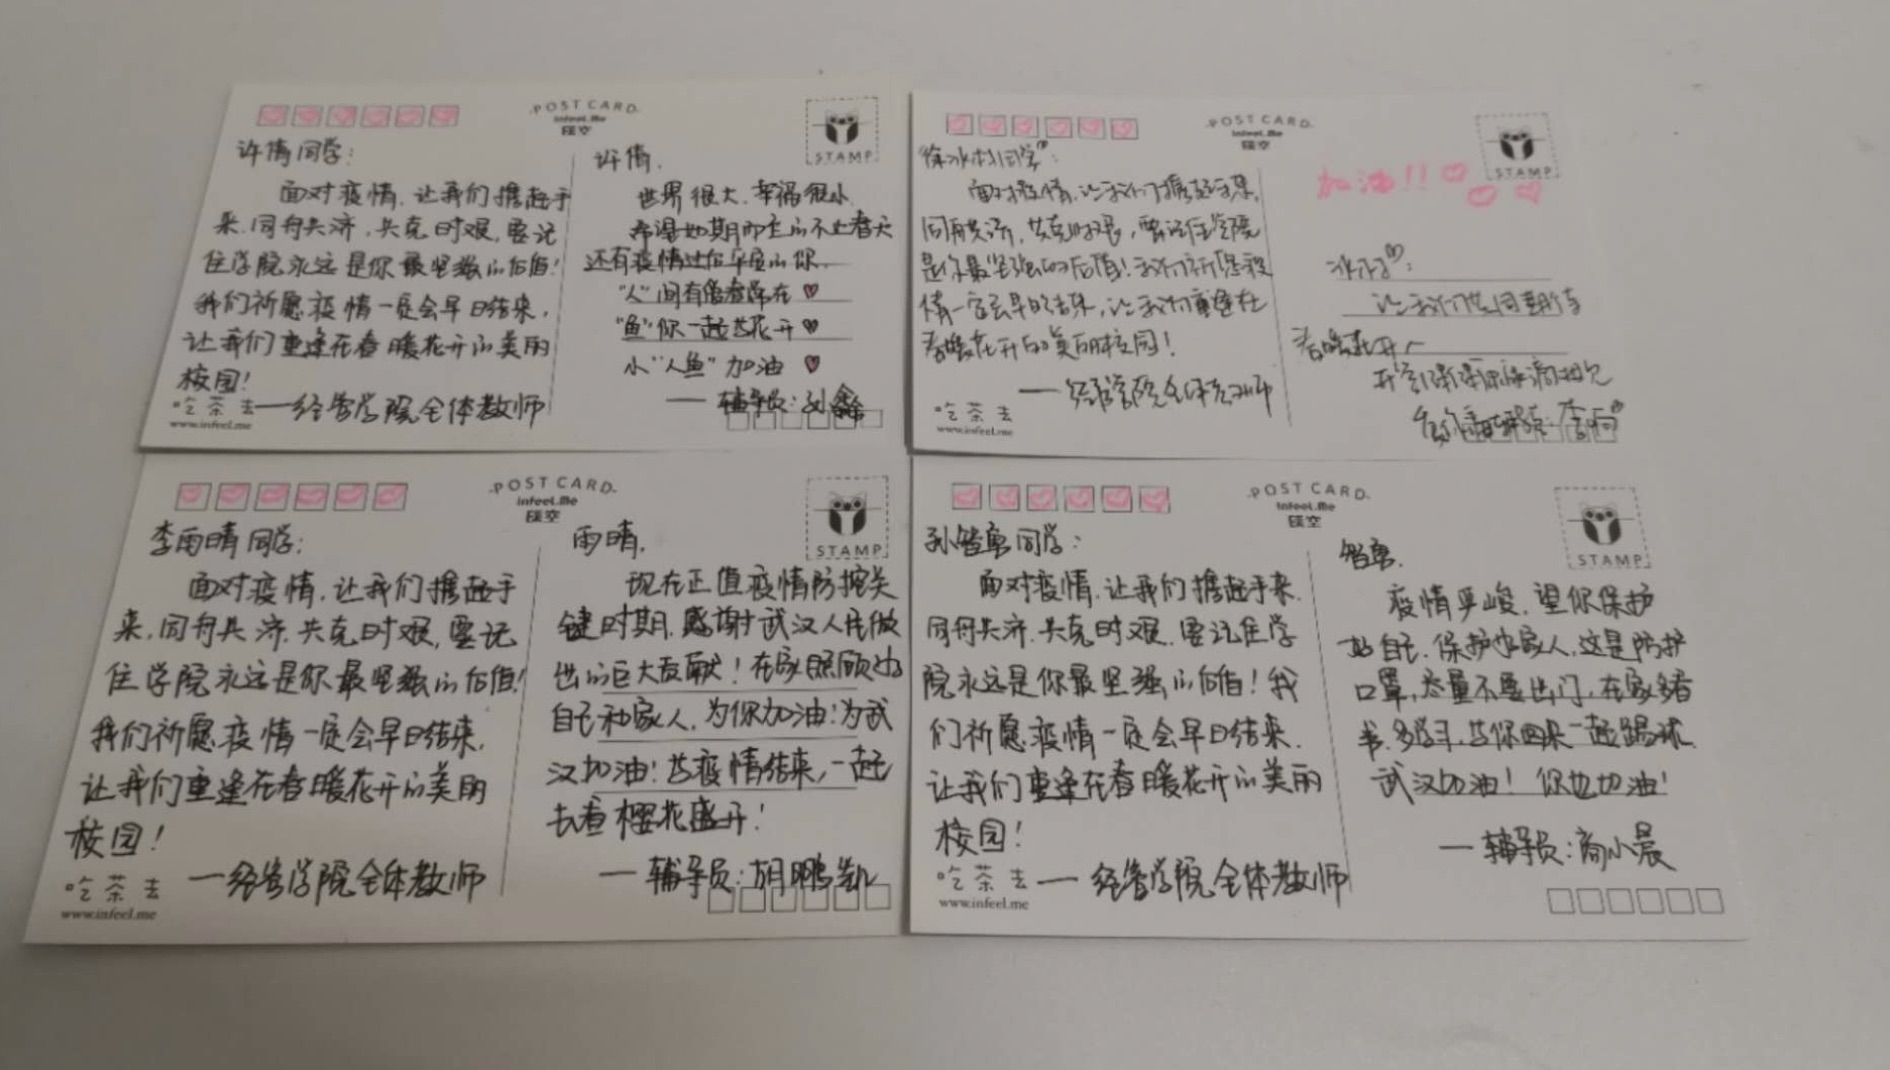 POST CARD
infeel.Me
STAMP
许倩同学：
面对疫情，让我们携起手
来，同舟共济，共克时艰，要记
住学院永远是你最坚强的后盾！
我们祈愿疫情一定会早日结束，
让我们重逢在春暖花开的美丽
校园！
——经管学院全体教师
吃茶去
www.infeel.me
许倩，
世界很大，幸福很小
希望如期而至的不止春天
还有疫情过后平安的你
"人"间有你
"鱼"你一起赏花开
小"人鱼"加油
——辅导员：孙鑫
POST CARD
infeel.Me
STAMP
徐冰冰同学：
面对疫情，让我们携起手来，
同舟共济，共克时艰，要记住学院
是你最坚强的后盾！我们祈愿疫
情一定会早日结束，让我们重逢在
春暖花开的美丽校园！
——经管学院全体教师
吃茶去
www.infeel.me
加油！！
让我们共同期待
春暖花开
POST CARD
infeel.Me
STAMP
李雨晴同学：
面对疫情，让我们携起手
来，同舟共济，共克时艰，要记
住学院永远是你最坚强的后盾！
我们祈愿疫情一定会早日结束，
让我们重逢在春暖花开的美丽
校园！
——经管学院全体教师
吃茶去
www.infeel.me
雨晴，
现在正值疫情防控关
键时期，感谢武汉人民做
出的巨大贡献！在家照顾好
自己和家人，为你加油！为武
汉加油！若疫情结束，一起
去看樱花盛开！
——辅导员：胡鹏凯
POST CARD
infeel.Me
STAMP
同学：
面对疫情，让我们携起手来，
同舟共济，共克时艰，要记住学
院永远是你最坚强的后盾！我
们祈愿疫情一定会早日结束，
让我们重逢在春暖花开的美丽
校园！
——经管学院全体教师
吃茶去
www.infeel.me
疫情严峻，望你保护
好自己，保护好家人，这是防护
口罩，尽量不要出门，在家多看
书，多学习，等你回来一起踢球
武汉加油！你也加油！
——辅导员：商小晨